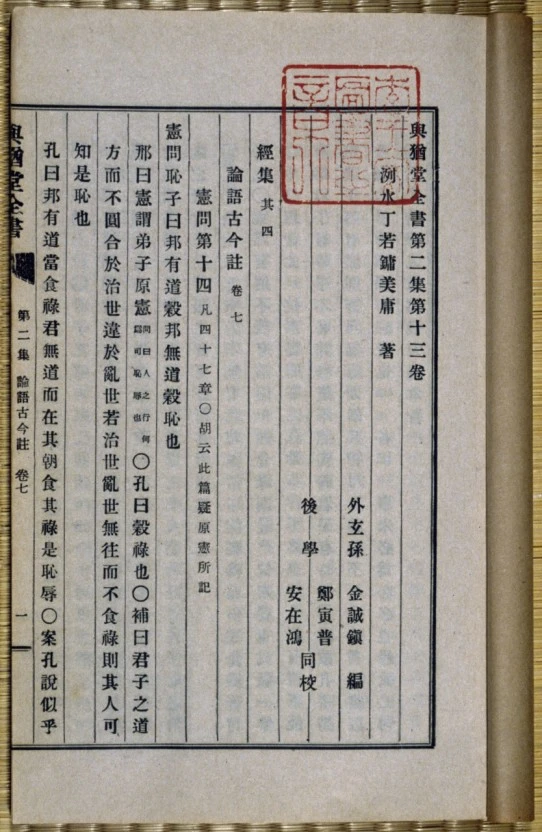 與猶堂全書第二集第十三卷
洌水丁若鏞美庸 著
外玄孫 金誠鎭 編
後學 鄭寅普 安在鴻 同校
經集 其四
論語古今註 卷七
憲問第十四 凡四十七章〇胡云此篇疑原憲所記
憲問恥子曰邦有道穀邦無道穀恥也
邢曰憲謂弟子原憲問曰人之行何爲可恥辱也〇孔曰穀祿也〇補曰君子之道
方而不圓合於治世違於亂世若治世亂世無往而不食祿則其人可
知是恥也
孔曰邦有道當食祿君無道而在其朝食其祿是恥辱〇案孔說似乎
與猶堂全書
第二集 論語古今註 卷七
一